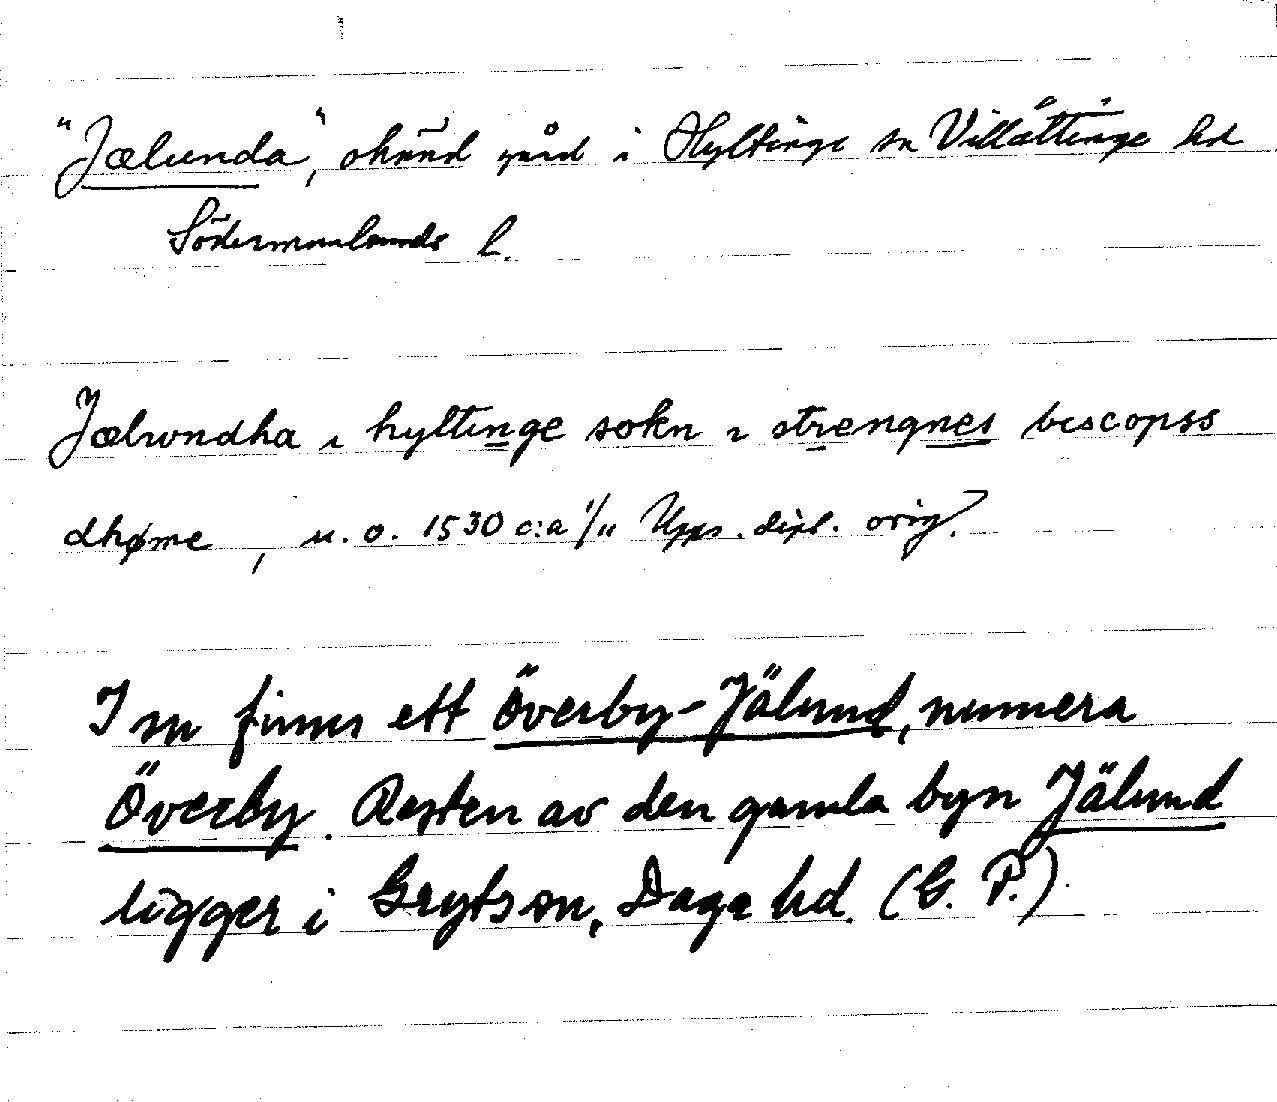 "Jælunda", okänd gård i Hyltinge sn Villåttinge hd
Södermanlands l.
Jælwndha i hyltinge sokn i strengnes biscopss
dhøme, u. o. 1530 c:a 1/11 Upps. dipl. orig.
I sn finns ett Överby-Jälund, numera
Överby. Resten av den gamla byn Jälund
ligger i Gryts sn, Daga hd. (G. P.)